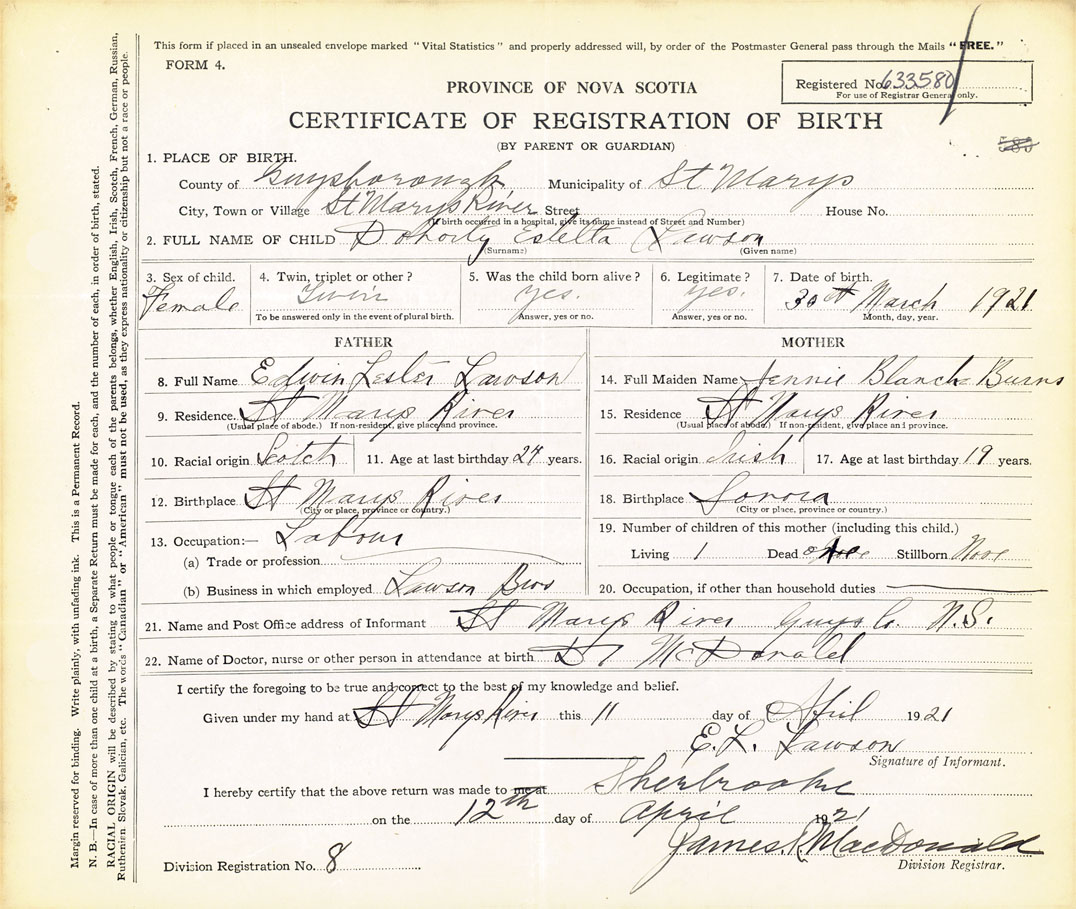 This form if placed in an unsealed envelope marked "Vital Statistics" and properly addressed will, by order of the Postmaster General pass through the Mails "FREE."
FORM 4.
Registered No. 633580
For use of Registrar General only.
PROVINCE OF NOVA SCOTIA
CERTIFICATE OF REGISTRATION OF BIRTH
(BY PARENT OR GUARDIAN)
583
1. PLACE OF BIRTH.
County of Guysborough Municipality of St Marys
City, Town or Village St Marys River Street House No.
(If birth occurred in a hospital, give its name instead of Street and Number)
2. FULL NAME OF CHILD Dohorty Estella Lawson
(Surname) (Given name)
3. Sex of child. 4. Twin, triplet or other? 5. Was the child born alive? 6. Legitimate? 7. Date of birth.
Female Twin yes. yes. 30th March 1921
To be answered only in the event of plural birth. Answer, yes or no. Answer, yes or no. Month, day, year.
FATHER MOTHER
8. Full Name Edwin Lester Lawson 14. Full Maiden Name Jennie Blanche Burns
9. Residence. St Marys River 15. Residence St Marys River
(Usual place of abode.) If non-resident, give place and province. (Usual place of abode.) If non-resident, give place and province.
10. Racial origin Scotch 11. Age at last birthday 24 years. 16. Racial origin Irish 17. Age at last birthday 19 years.
12. Birthplace St Marys River 18. Birthplace Sonora
(City or place, province or country.) (City or place, province or country.)
13. Occupation:— Labour 19. Number of children of this mother (including this child.)
(a) Trade or profession Living 1 Dead one Stillborn None
(b) Business in which employed Lawson Bros 20. Occupation, if other than household duties
21. Name and Post Office address of Informant St Marys River Guys Co. N.S.
22. Name of Doctor, nurse or other person in attendance at birth Dr McDonald
I certify the foregoing to be true and correct to the best of my knowledge and belief.
Given under my hand at St Marys River this 11 day of April 1921
E. L. Lawson
Signature of Informant.
I hereby certify that the above return was made to me at Sherbrooke
on the 12th day of April 1921
James R MacDonald
Division Registrar.
Division Registration No. 8
Margin reserved for binding. Write plainly, with unfading ink. This is a Permanent Record.
N. B.—In case of more than one child at a birth, a Separate Return must be made for each, and the number of each, in order of birth, stated.
RACIAL ORIGIN will be described by stating to what people or tongue each of the parents belongs, whether English, Irish, Scotch, French, German, Russian,
Ruthenian, Slovak, Galician, etc. The words "Canadian" or "American" must not be used, as they express nationality or citizenship but not a race or people.